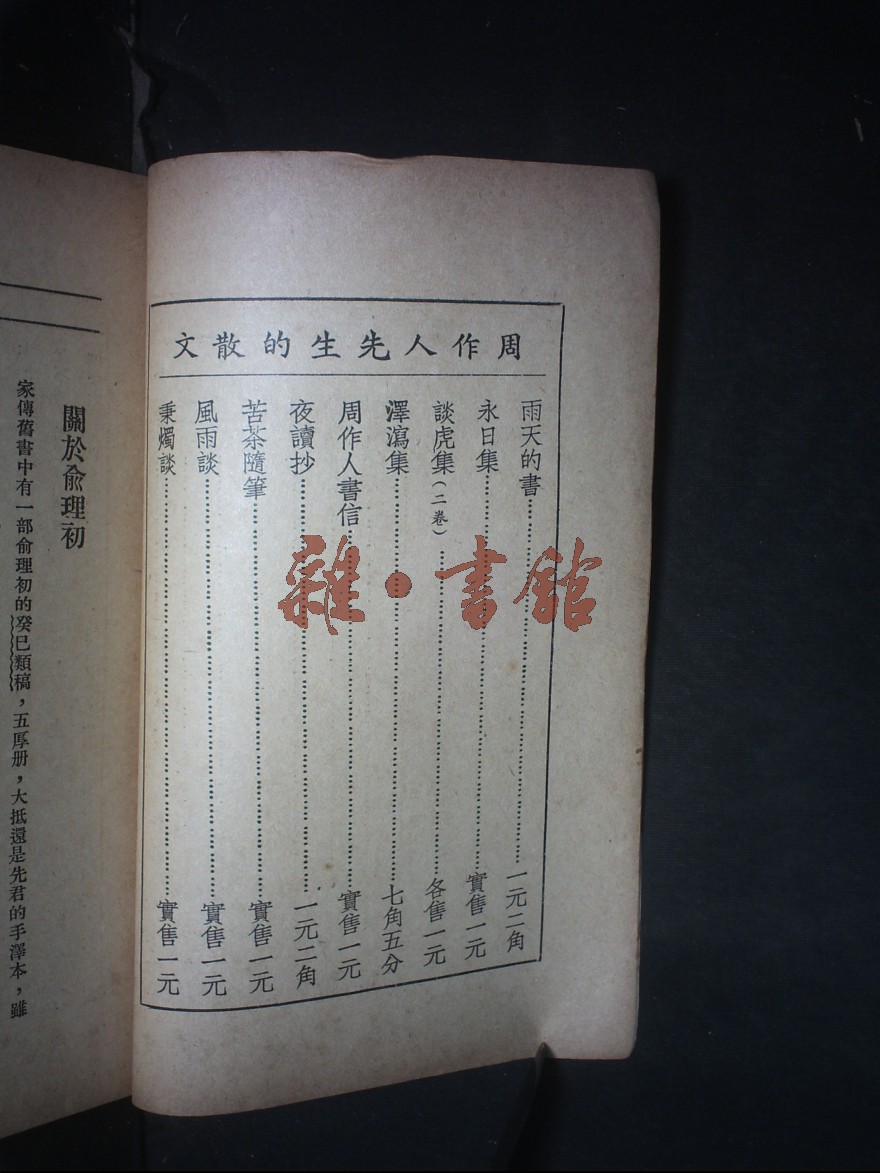 周作人先生的散文
雨天的書……一元二角
永日集……實售一元
談虎集(二卷)……各售一元
澤瀉集……七角五分
周作人書信……實售一元
夜讀抄……一元二角
苦茶隨筆……實售一元
風雨談……實售一元
秉燭談……實售一元
關於俞理初
家傳舊書中有一部俞理初的癸巳類稿,五厚册,大抵還是先君的手澤本,雖
雜·書館